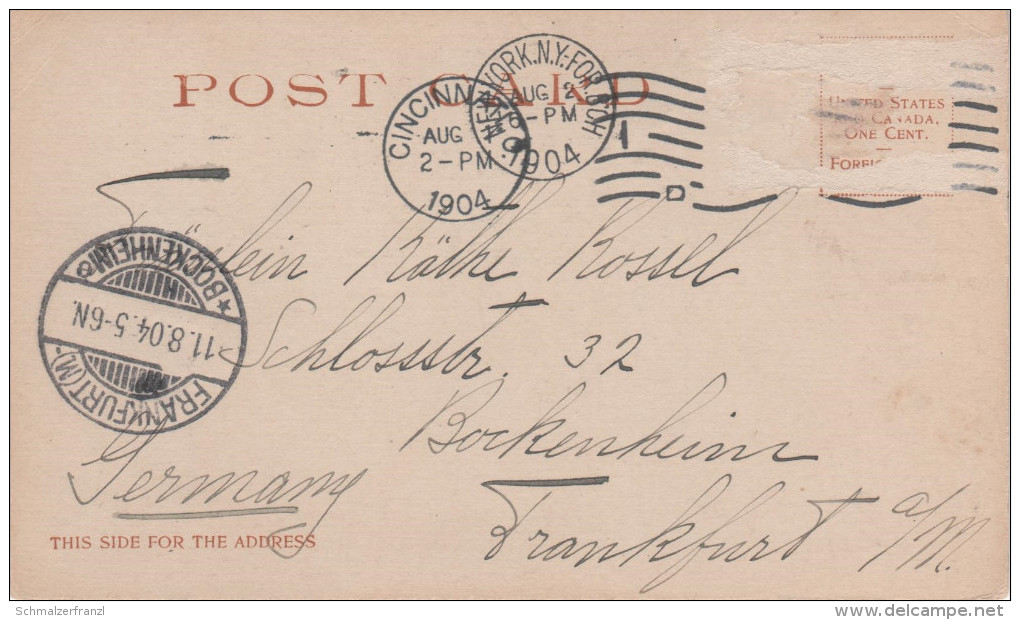 POST CARD
CINCINNATI, O.
AUG
2-PM
1904
NEW YORK, N.Y.-FOR. BCH
AUG 2
PM
1904
1
UNITED STATES
CANADA,
ONE CENT.
FOREIGN
Fräulein Käthe Rossel
Schlossstr. 32
Bockenheim
Frankfurt a/M.
Germany
FRANKFURT (M).-
11.8.04.5-6N.
★BOCKENHEIM
THIS SIDE FOR THE ADDRESS
Schmalzerfranzl
www.delcampe.net